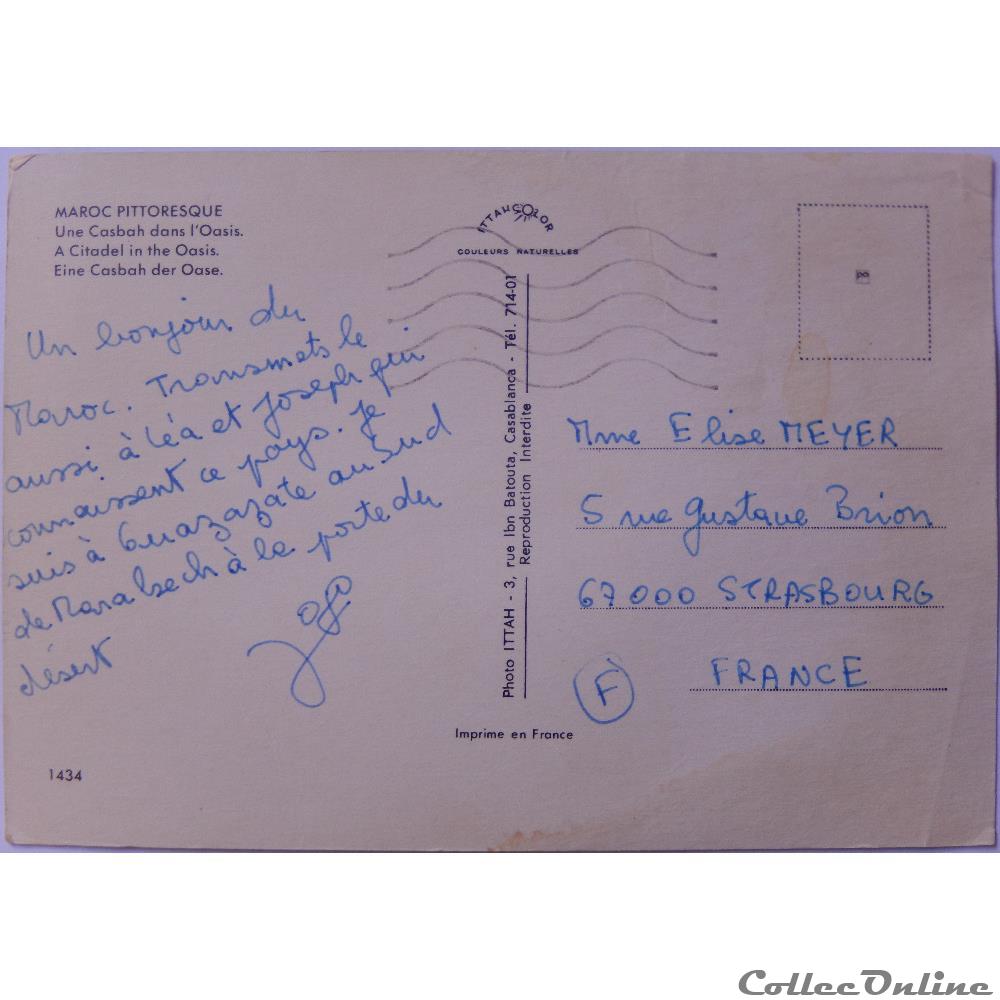 MAROC PITTORESQUE
Une Casbah dans l'Oasis.
A Citadel in the Oasis.
Eine Casbah der Oase.
Un bonjour du
Maroc. Transmets le
aussi à Léa et Joseph qui
connaissent ce pays. Je
suis à Ouazazate au Sud
de Marakech à la porte du
désert
1434
ITTAHCOLOR
COULEURS NATURELLES
Photo ITTAH - 3, rue Ibn Batouta, Casablanca - Tél. 714-01
Reproduction Interdite
Imprime en France
Mme Elise MEYER
5 rue Gustave Brion
67000 STRASBOURG
F
FRANCE
CollecOnline